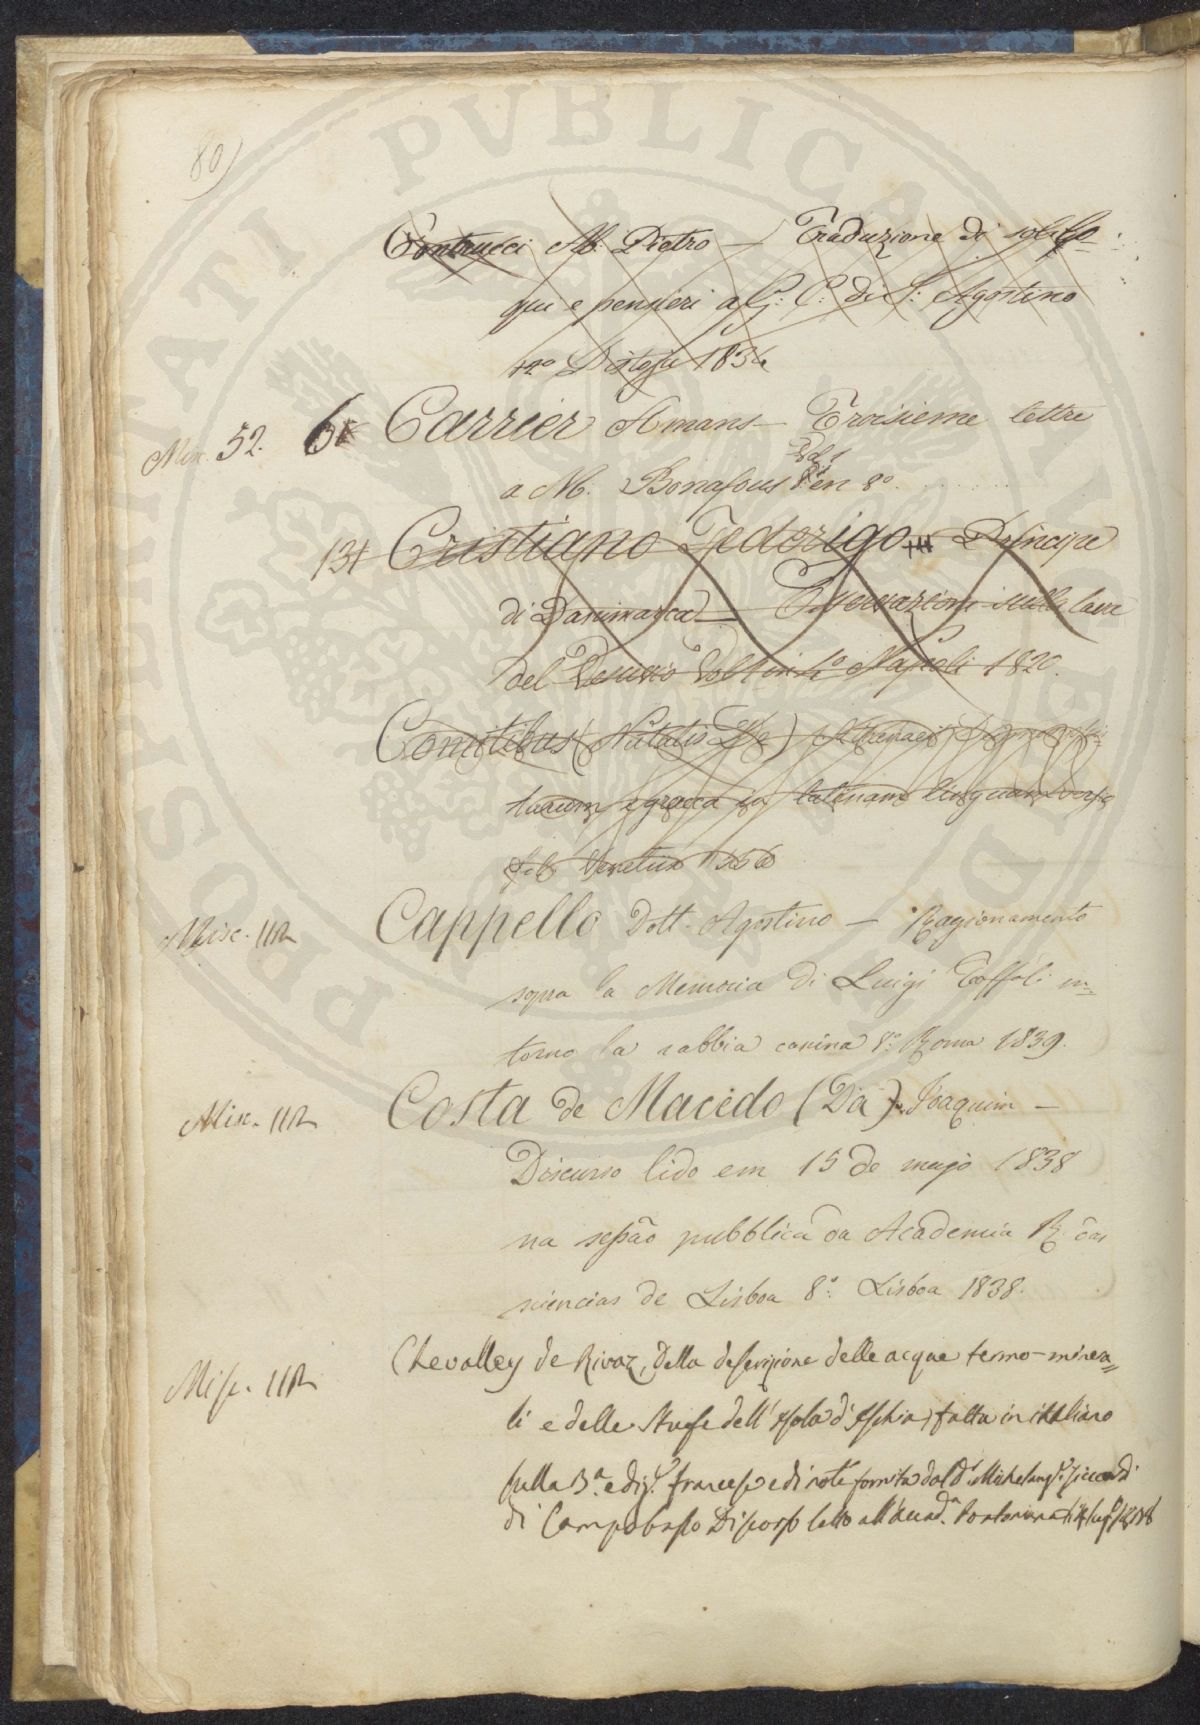 80)
Contrucci Ab. Pietro — Traduzione di solilo-
qui e pensieri a G: C: di S: Agostino
12° Pistoja 1834
Misc. 52. 6 Carrier Amans — Troisieme lettre
a M. Bonafous en 8°
13 Cristiano Federigo Principe
di Danimarca — Osservazioni sulla lava
del Vesuvio Vol. 1 in 4° Napoli 1820.
Comitibus (Natalis De) Athenaei
e graeca in latinam linguam versa
Venetiis
Misc. 112 Cappello Dott. Agostino — Ragionamento
sopra la Memoria di Luigi Toffoli in=
torno la rabbia canina 8°: Roma 1839.
Misc. 112 Costa de Macedo (Da) Joaquim —
Discurso lido em 15 de majo 1838
na sessão pubblica da Academia R. das
sciencias de Lisboa 8°: Lisboa 1838.
Misc. 112 Chevalley de Rivaz, Della descrizione delle acque termo-minera=
li e delle Stufe dell'isola d'Ischia, fatta in italiano
sulla 3.a ediz.e francese e di note fornita dal D.r Michelang.o Ziccardi
di Campobasso Discorso letto all'Accad.a Pontaniana